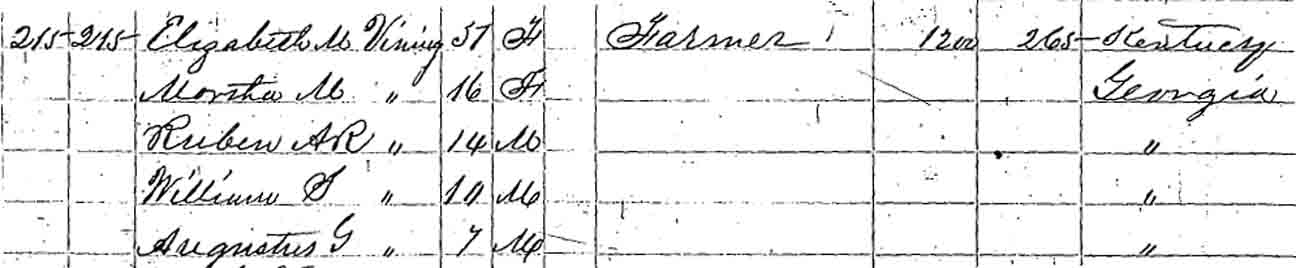 215 215 Elizabeth M Vining 57 F Farmer 1200 265 Kentucy
Martha M " 16 F Georgia
Ruben AR " 14 M "
William S " 10 M "
Augustus G " 7 M "